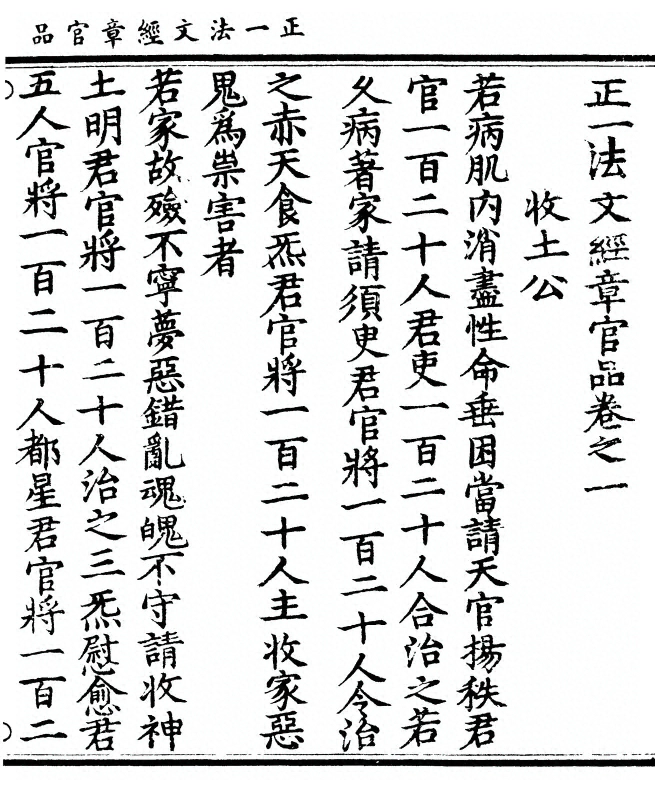 正一法文經章官品
正一法文經章官品卷之一
收土公
若病肌內消盡性命垂困當請天官揚秩君
官一百二十人君吏一百二十人合治之若
久病著家請須臾君官將一百二十人令治
之赤天食炁君官將一百二十人主收家惡
鬼爲祟害者
若家故殗不寧夢惡錯亂魂魄不守請收神
土明君官將一百二十人治之三炁慰愈君
五人官將一百二十人都星君官將一百二